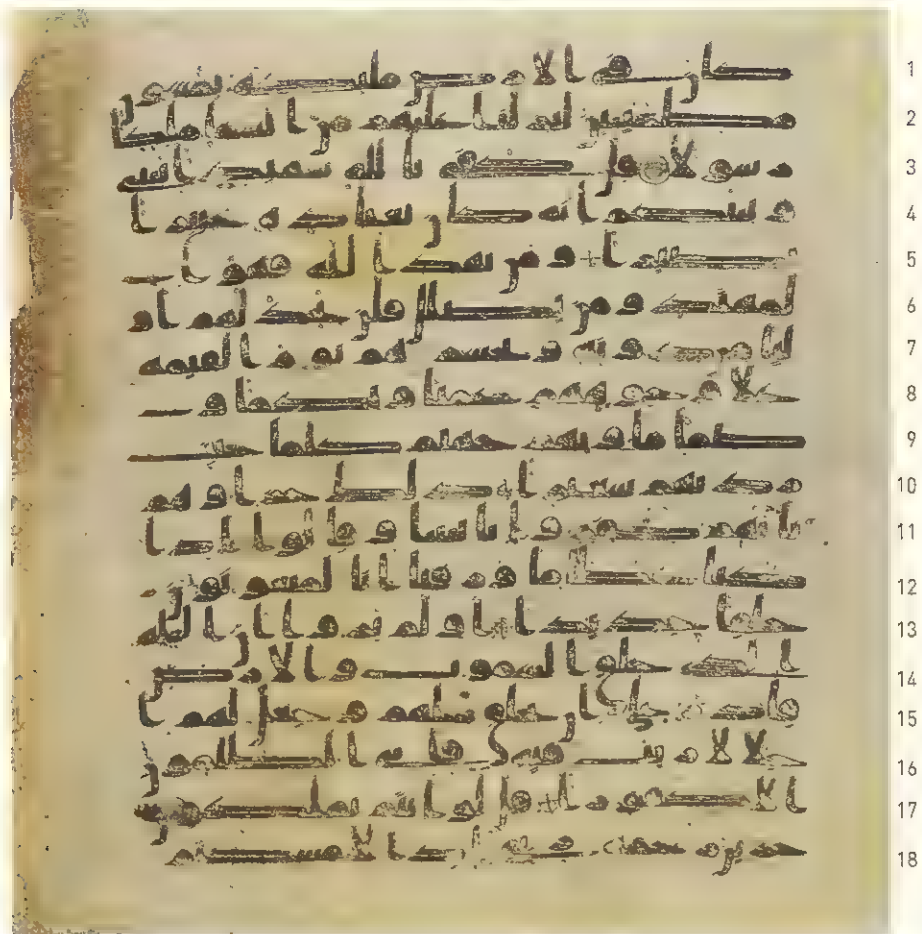 كان فى الارض ملئكه يمشون
مطمئنين لنزلنا عليهم من السما ملكا
رسولا قل كفى بالله شهيدا بينى
و بينكم انه كان بعباده خبيرا
بصيرا و من يهد الله فهو ا
لمهتد و من يضلل فلن تجد لهم او
ليا من دونه و نحشرهم يوم القيمه
على وجوههم عميا و بكما و
صما ماويهم جهنم كلما خبت
زدنهم سعيرا ذلك جزاوهم
بانهم كفروا بايتنا و قالوا اذا
كنا عظما و رفتا انا لمبعوثون
خلقا جديدا او لم يروا ان الله
الذى خلق السموت و الارض
قادر على ان يخلق مثلهم و جعل لهم ا
جلا لا ريب فيه فابى الظلمون
الا كفورا قل لو انتم تملكون
خزاين رحمه ربى اذا لامسكتم
1
2
3
4
5
6
7
8
9
10
11
12
13
14
15
16
17
18